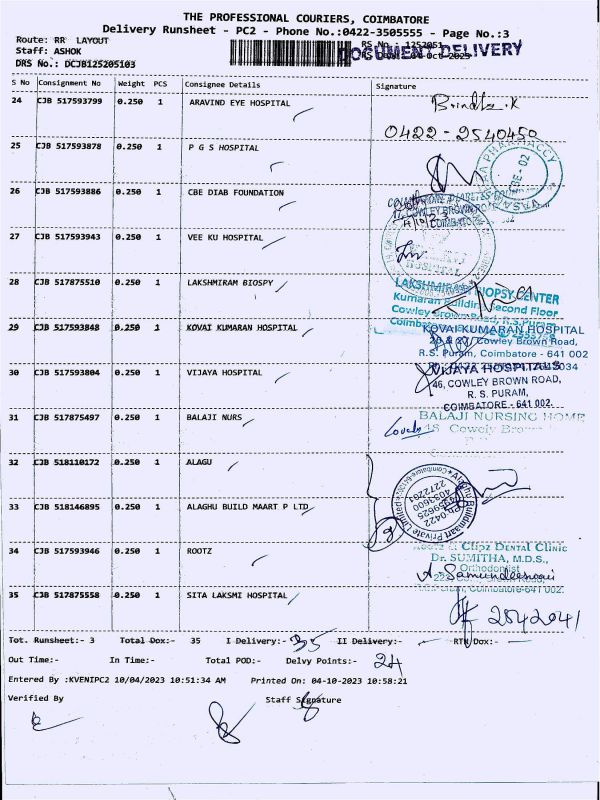 THE PROFESSIONAL COURIERS, COIMBATORE
Delivery Runsheet - PC2 - Phone No.:0422-3505555 - Page No.:3
Route: RR LAYOUT
DOCUMENT DELIVERY
Staff: ASHOK
DRS No.: DCJB125205103
S No Consignment No Weight PCS Consignee Details Signature
24 CJB 517593799 0.250 1 ARAVIND EYE HOSPITAL Brindha.K
0422-2540450
25 CJB 517593878 0.250 1 P G S HOSPITAL
26 CJB 517593886 0.250 1 CBE DIAB FOUNDATION
COWLEY BROWN
COIMBATORE
27 CJB 517593943 0.250 1 VEE KU HOSPITAL
HOSPITAL
28 CJB 517875510 0.250 1 LAKSHMIRAM BIOSPY
LAKSHMIRAM BIOPSY CENTER
Kumaran Building, Second Floor
Cowley Brown Road, R.S.Puram
29 CJB 517593848 0.250 1 KOVAI KUMARAN HOSPITAL KOVAI KUMARAN HOSPITAL
Cowley Brown Road,
R.S. Puram, Coimbatore - 641 002
30 CJB 517593804 0.250 1 VIJAYA HOSPITAL VIJAYA HOSPITALS
46, COWLEY BROWN ROAD,
R. S. PURAM,
COIMBATORE - 641 002.
31 CJB 517875497 0.250 1 BALAJI NURS BALAJI NURSING HOME
32 CJB 518110172 0.250 1 ALAGU
33 CJB 518146895 0.250 1 ALAGHU BUILD MAART P LTD
Alaghu Buildmaart Private Limited
34 CJB 517593946 0.250 1 ROOTZ
Clipz Dental Clinic
Dr. SUMITHA, M.D.S.,
Orthodontist
35 CJB 517875558 0.250 1 SITA LAKSMI HOSPITAL
2542041
Tot. Runsheet:- 3 Total Dox:- 35 I Delivery:- 35 II Delivery:- RTN Dox:-
Out Time:- In Time:- Total POD:- Delvy Points:- 24
Entered By :KVENIPC2 10/04/2023 10:51:34 AM Printed On: 04-10-2023 10:58:21
Verified By Staff Signature